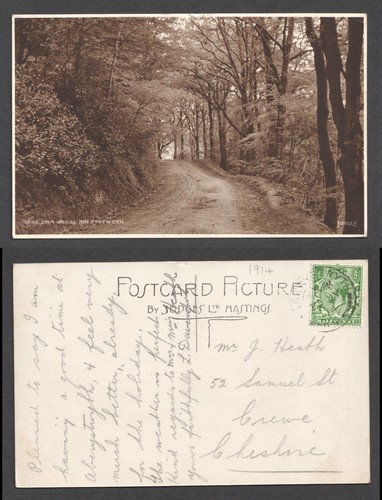 CWM WOODS. ABERYSTWYTH.
JUDGES
1914
POSTCARD PICTURE
BY JUDGES LTD HASTINGS.
Pleased to say I am
having a good time at
Aberystwyth, & feel very
much better already
for the holiday.
The weather is perfect.
Kind regards to Mrs & Miss Heath
yours faithfully L. Davenport
Mr J. Heath
52 Samuel St
Crewe
Cheshire